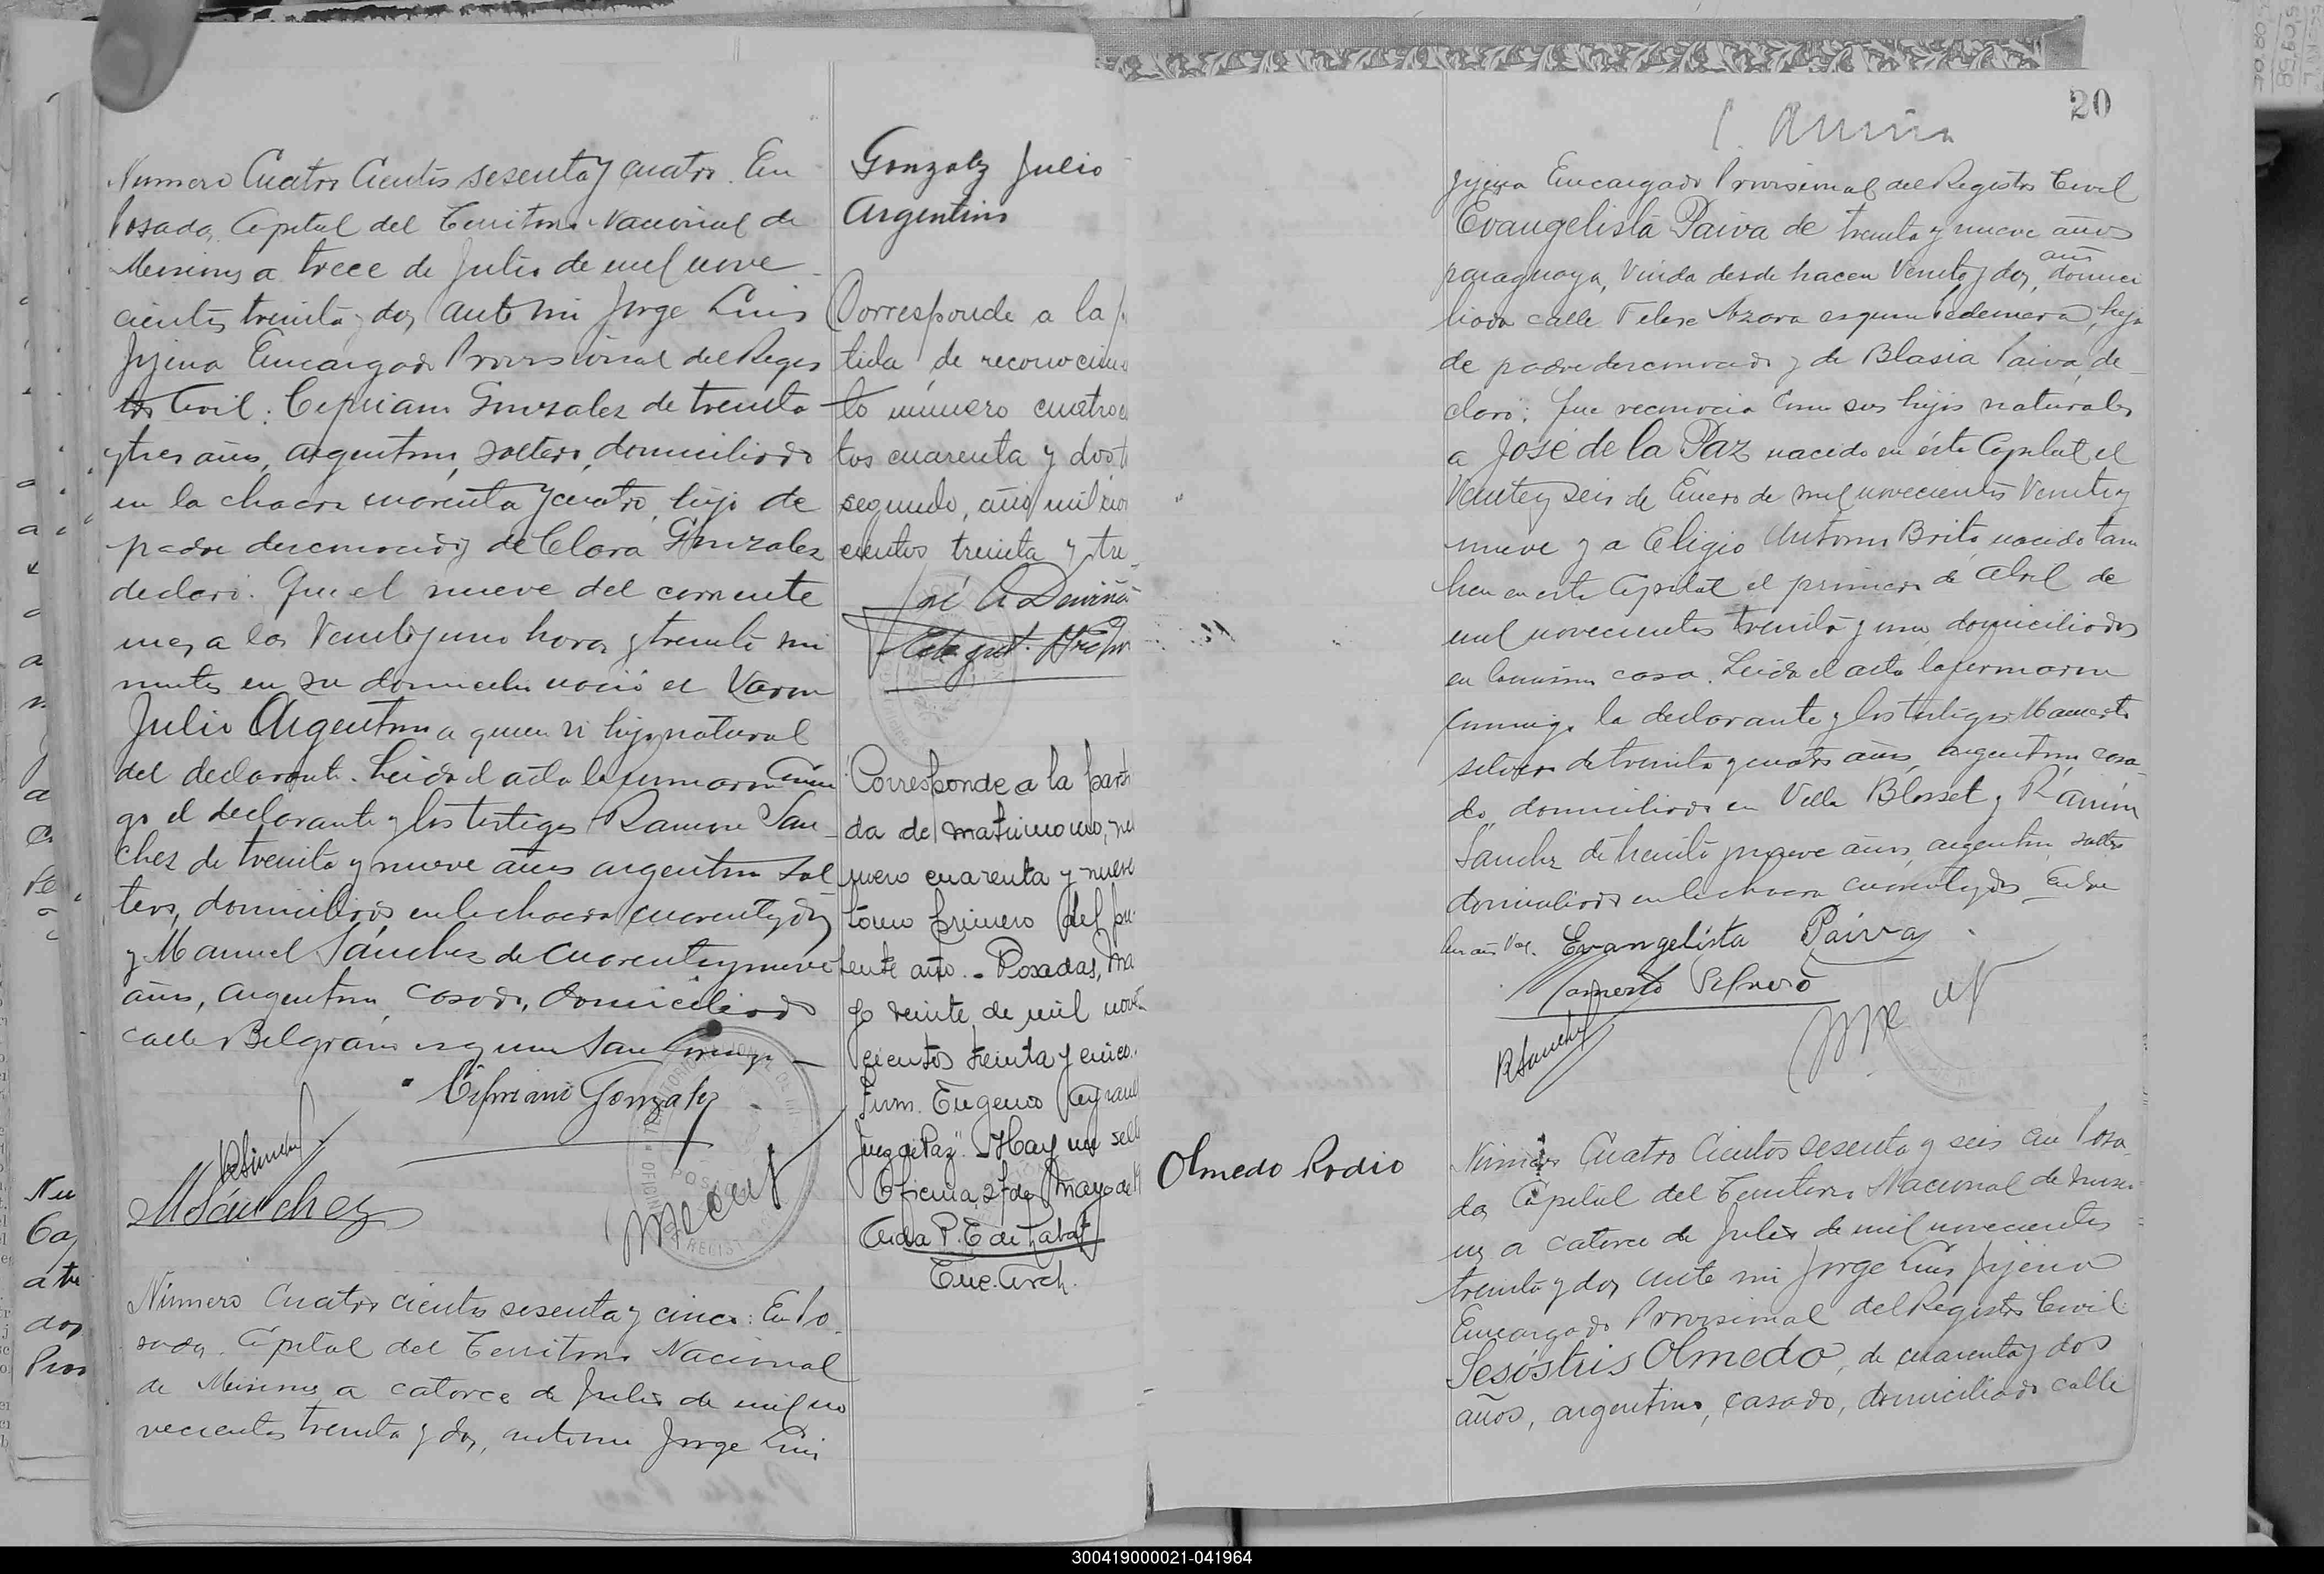 Numero Cuatro Cientos sesenta y cuatro. En
Posadas Capital del Territorio Nacional de
Misiones a trece de Julio de mil nove
cientos treinta y dos ante mi Jorge Luis
Jijena Encargado Provisional del Regis
tro Civil: Cipriano Gonzalez de treinta
y tres años, argentino, soltero, domiciliado
en la chacra cuarenta y cuatro, hijo de
padre desconocido y de Clara Gonzalez
declaró: Que el nueve del corriente
mes a las Veintijuno horas y treinta mi
nutos en su domicilio nació el Varon
Julio Argentino a quien vi hijo natural
del declarante. Leida el acta la firmaron Conmi
go el declarante y los testigos Ramon San
chez de treinta y nueve años argentino sol
tero, domiciliado en la chacra cuarenta y dos
y Manuel Sánchez de cuarenta y nueve
años, argentino, casado, domiciliado
calle Belgrano esquina San Lorenzo
Cipriano Gonzalez
RSanchez
MSánchez
Gonzalez Julio
Argentino
Corresponde a la
tida de reconocimi
to número cuatro
tos cuarenta y dos
segundo, año mil
cientos treinta y tre
Corresponde a la part
da de matrimonio, nu
mero cuarenta y nueve
tomo primero del pre
sente año. - Posadas, Ma
yo veinte de mil nove
cientos treinta y cinco.
Firm. Eugenio
Juez de Paz". - Hay un sello
Oficina, 27 de Mayo de
Enc. Arch.
Número Cuatro cientos sesenta y cinco: En Po
sadas Capital del Territorio Nacional
de Misiones a catorce de Julio de mil no
vecientos treinta y dos, ante mi Jorge Luis
20
Jijena Encargado Provisional del Registro Civil
Evangelista Paiva de treinta y nueve años
paraguaya, Viuda desde hacen Veinte y dos años, domici
liada calle Felix Azara esquina Pedernera, hija
de padre desconocido y de Blasia Paiva, de
claró: Que reconocia como sus hijos naturales
a José de la Paz nacido en ésta Capital el
Veinte y seis de Enero de mil novecientos Veinte y
nueve y a Eligio Antonio Brito, nacido tam
bien en esta Capital el primero de Abril de
mil novecientos treinta y uno, domiciliados
en la misma casa. Leida el acta la firmaron
conmigo la declarante y los testigos Mamerto
Silvero de treinta y cuatro años, argentino, casa
do, domiciliado en Villa Blosset y Ramón
Sanchez de treinta y nueve años, argentino, soltero
domiciliado en la chacra cuarenta y dos Entre
lin años Val.
Evangelista Paiva
Mamerto Silvero
RSanchez
Olmedo Rodio
Número Cuatro Cientos sesenta y seis En Posa
das Capital del Territorio Nacional de Misio
nes a catorce de Julio de mil novecientos
treinta y dos ante mi Jorge Luis Jijena
Encargado Provisional del Registro Civil
Sesóstris Olmedo, de cuarenta y dos
años, argentino, casado, domiciliado calle
300419000021-041964